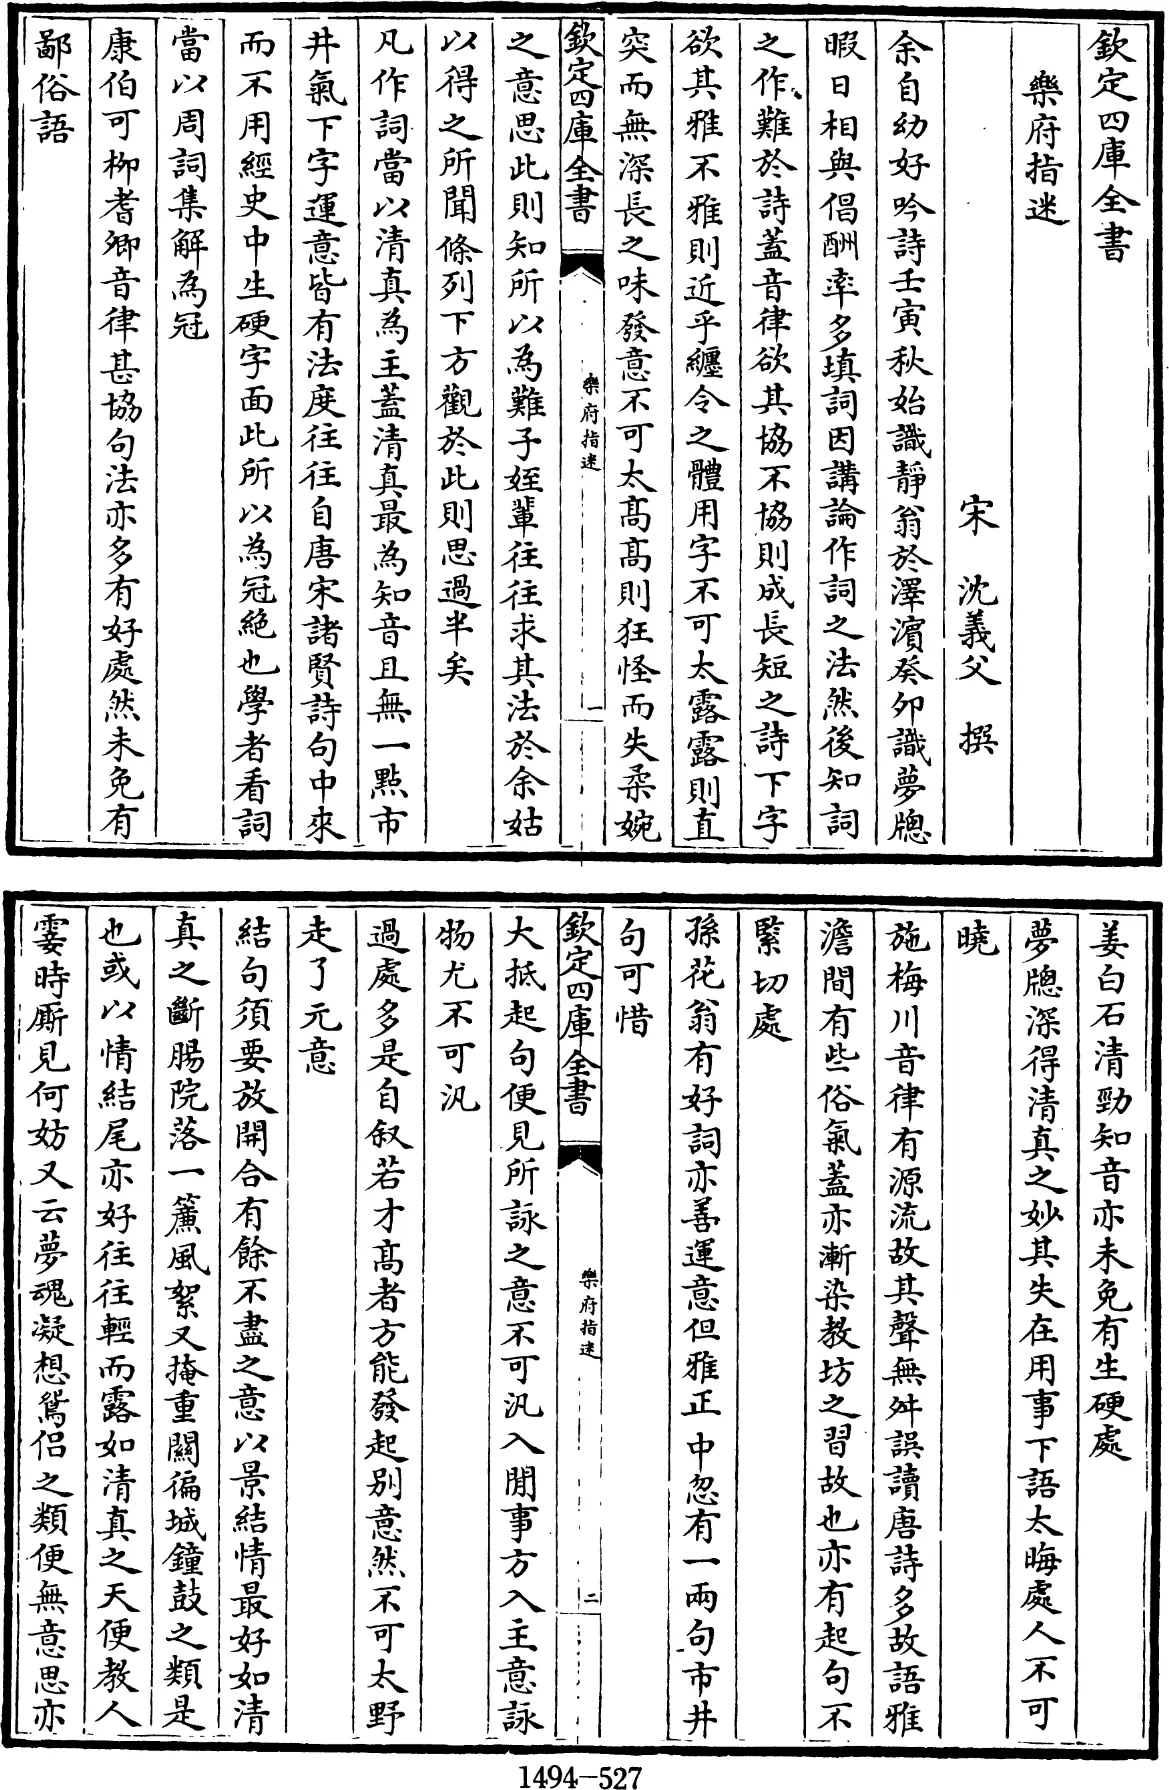 欽定四庫全書
樂府指迷
宋 沈義父 撰
余自幼好吟詩壬寅秋始識靜翁於澤濱癸卯識夢牕
暇日相與倡酬率多填詞因講論作詞之法然後知詞
之作難於詩蓋音律欲其協不協則成長短之詩下字
欲其雅不雅則近乎纏令之體用字不可太露露則直
突而無深長之味發意不可太髙髙則狂怪而失柔婉
欽定四庫全書
樂府指迷
一
之意思此則知所以為難子姪輩往往求其法於余姑
以得之所聞條列下方觀於此則思過半矣
凡作詞當以清真為主蓋清真最為知音且無一點市
井氣下字運意皆有法度往往自唐宋諸賢詩句中來
而不用經史中生硬字面此所以為冠絶也學者看詞
當以周詞集解為冠
康伯可柳耆卿音律甚協句法亦多有好處然未免有
鄙俗語
姜白石清勁知音亦未免有生硬處
夢牕深得清真之妙其失在用事下語太晦處人不可
曉
施梅川音律有源流故其聲無舛誤讀唐詩多故語雅
澹間有些俗氣蓋亦漸染教坊之習故也亦有起句不
緊切處
孫花翁有好詞亦善運意但雅正中忽有一兩句市井
句可惜
欽定四庫全書
樂府指迷
二
大抵起句便見所詠之意不可汎入閒事方入主意詠
物尤不可汎
過處多是自叙若才髙者方能發起别意然不可太野
走了元意
結句須要放開合有餘不盡之意以景結情最好如清
真之斷腸院落一簾風絮又掩重關徧城鐘鼓之類是
也或以情結尾亦好往往輕而露如清真之天便教人
霎時厮見何妨又云夢魂凝想鴛侣之類便無意思亦
1494—527